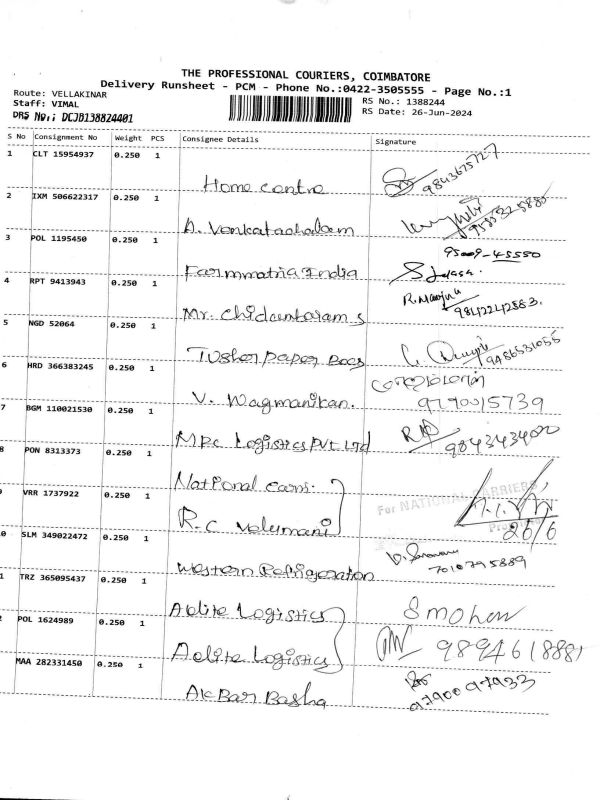 THE PROFESSIONAL COURIERS, COIMBATORE
Delivery Runsheet - PCM - Phone No.:0422-3505555 - Page No.:1
Route: VELLAKINAR
Staff: VIMAL
DRS No.: DCJB138824401
RS No.: 1388244
RS Date: 26-Jun-2024
S No Consignment No Weight PCS Consignee Details Signature
1 CLT 15954937 0.250 1 Home centre 9843675727
2 IXM 506622317 0.250 1 A. Venkatachalam
3 POL 1195450 0.250 1 Farmmatria India 95009-45550
4 RPT 9413943 0.250 1 Mr. Chidambaram s R. Manjula 9842242883.
5 NGD 52064 0.250 1 Tusher paper Boes 9486531055
6 HRD 366383245 0.250 1 V. Wagmanikan. 9790015739
7 BGM 110021530 0.250 1 MRc Logistics Pvt Ltd 9843434020
8 PON 8313373 0.250 1 National carri.
9 VRR 1737922 0.250 1 R.C Velumani For NATIONAL CARRIERS 26/6
0 SLM 349022472 0.250 1 Western Refrigeration 7010795889
1 TRZ 365095437 0.250 1 Adite Logistics S mohan
2 POL 1624989 0.250 1 Adite Logistics 9894618881
MAA 282331450 0.250 1 Akbar Basha 9790097933